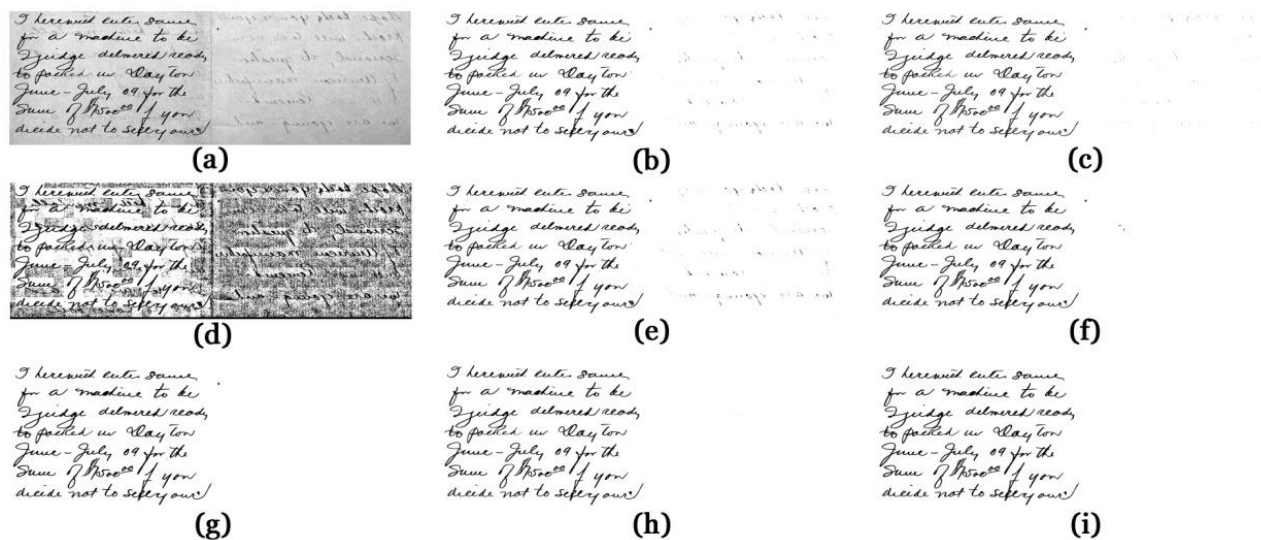 I herewith enter same
for a machine to be
I judge delivered ready
to packed in Dayton
June - July 09 for the
Sum of if you
decide not to sell yours
(a)
I herewith enter same
for a machine to be
I judge delivered ready
to packed in Dayton
June - July 09 for the
Sum of if you
decide not to sell yours
(b)
I herewith enter same
for a machine to be
I judge delivered ready
to packed in Dayton
June - July 09 for the
Sum of if you
decide not to sell yours
(c)
I herewith enter same
for a machine to be
I judge delivered ready
to packed in Dayton
June - July 09 for the
Sum of if you
decide not to sell yours
(d)
I herewith enter same
for a machine to be
I judge delivered ready
to packed in Dayton
June - July 09 for the
Sum of if you
decide not to sell yours
(e)
I herewith enter same
for a machine to be
I judge delivered ready
to packed in Dayton
June - July 09 for the
Sum of if you
decide not to sell yours
(f)
I herewith enter same
for a machine to be
I judge delivered ready
to packed in Dayton
June - July 09 for the
Sum of if you
decide not to sell yours
(g)
I herewith enter same
for a machine to be
I judge delivered ready
to packed in Dayton
June - July 09 for the
Sum of if you
decide not to sell yours
(h)
I herewith enter same
for a machine to be
I judge delivered ready
to packed in Dayton
June - July 09 for the
Sum of if you
decide not to sell yours
(i)